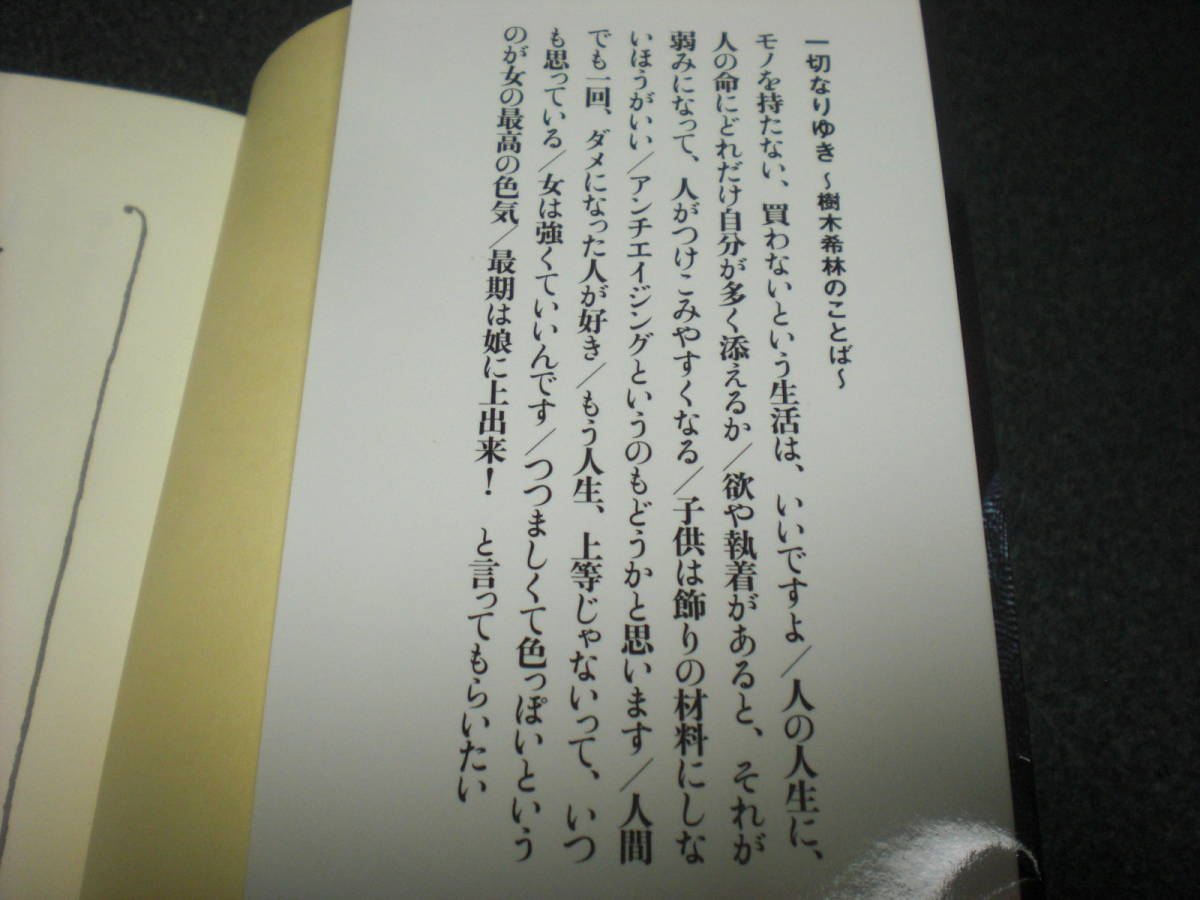 一切なりゆき ～樹木希林のことば～
モノを持たない、買わないという生活は、いいですよ／人の人生に、
人の命にどれだけ自分が多く添えるか／欲や執着があると、それが
弱みになって、人がつけこみやすくなる／子供は飾りの材料にしな
いほうがいい／アンチエイジングというのもどうかと思います／人間
でも一回、ダメになった人が好き／もう人生、上等じゃないって、いつ
も思っている／女は強くていいんです／つつましくて色っぽいという
のが女の最高の色気／最期は娘に上出来！　と言ってもらいたい